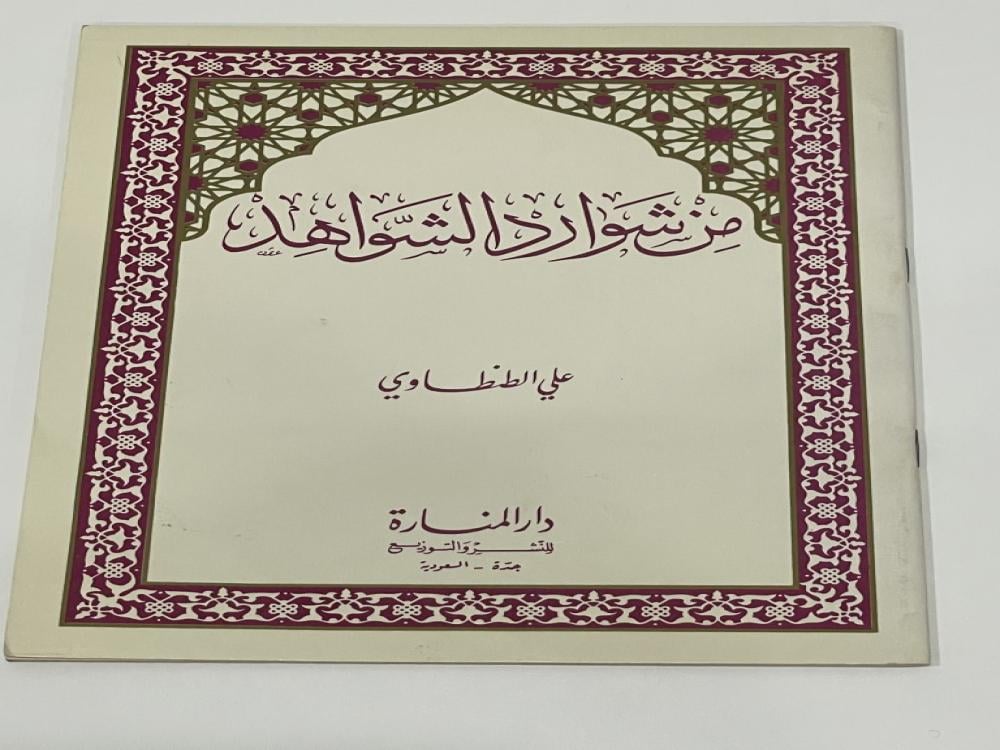 من شوارد الشّواهد
علي الطنطاوي
دار المنارة
للنّشر والتوزيع
جدّة - السعودية